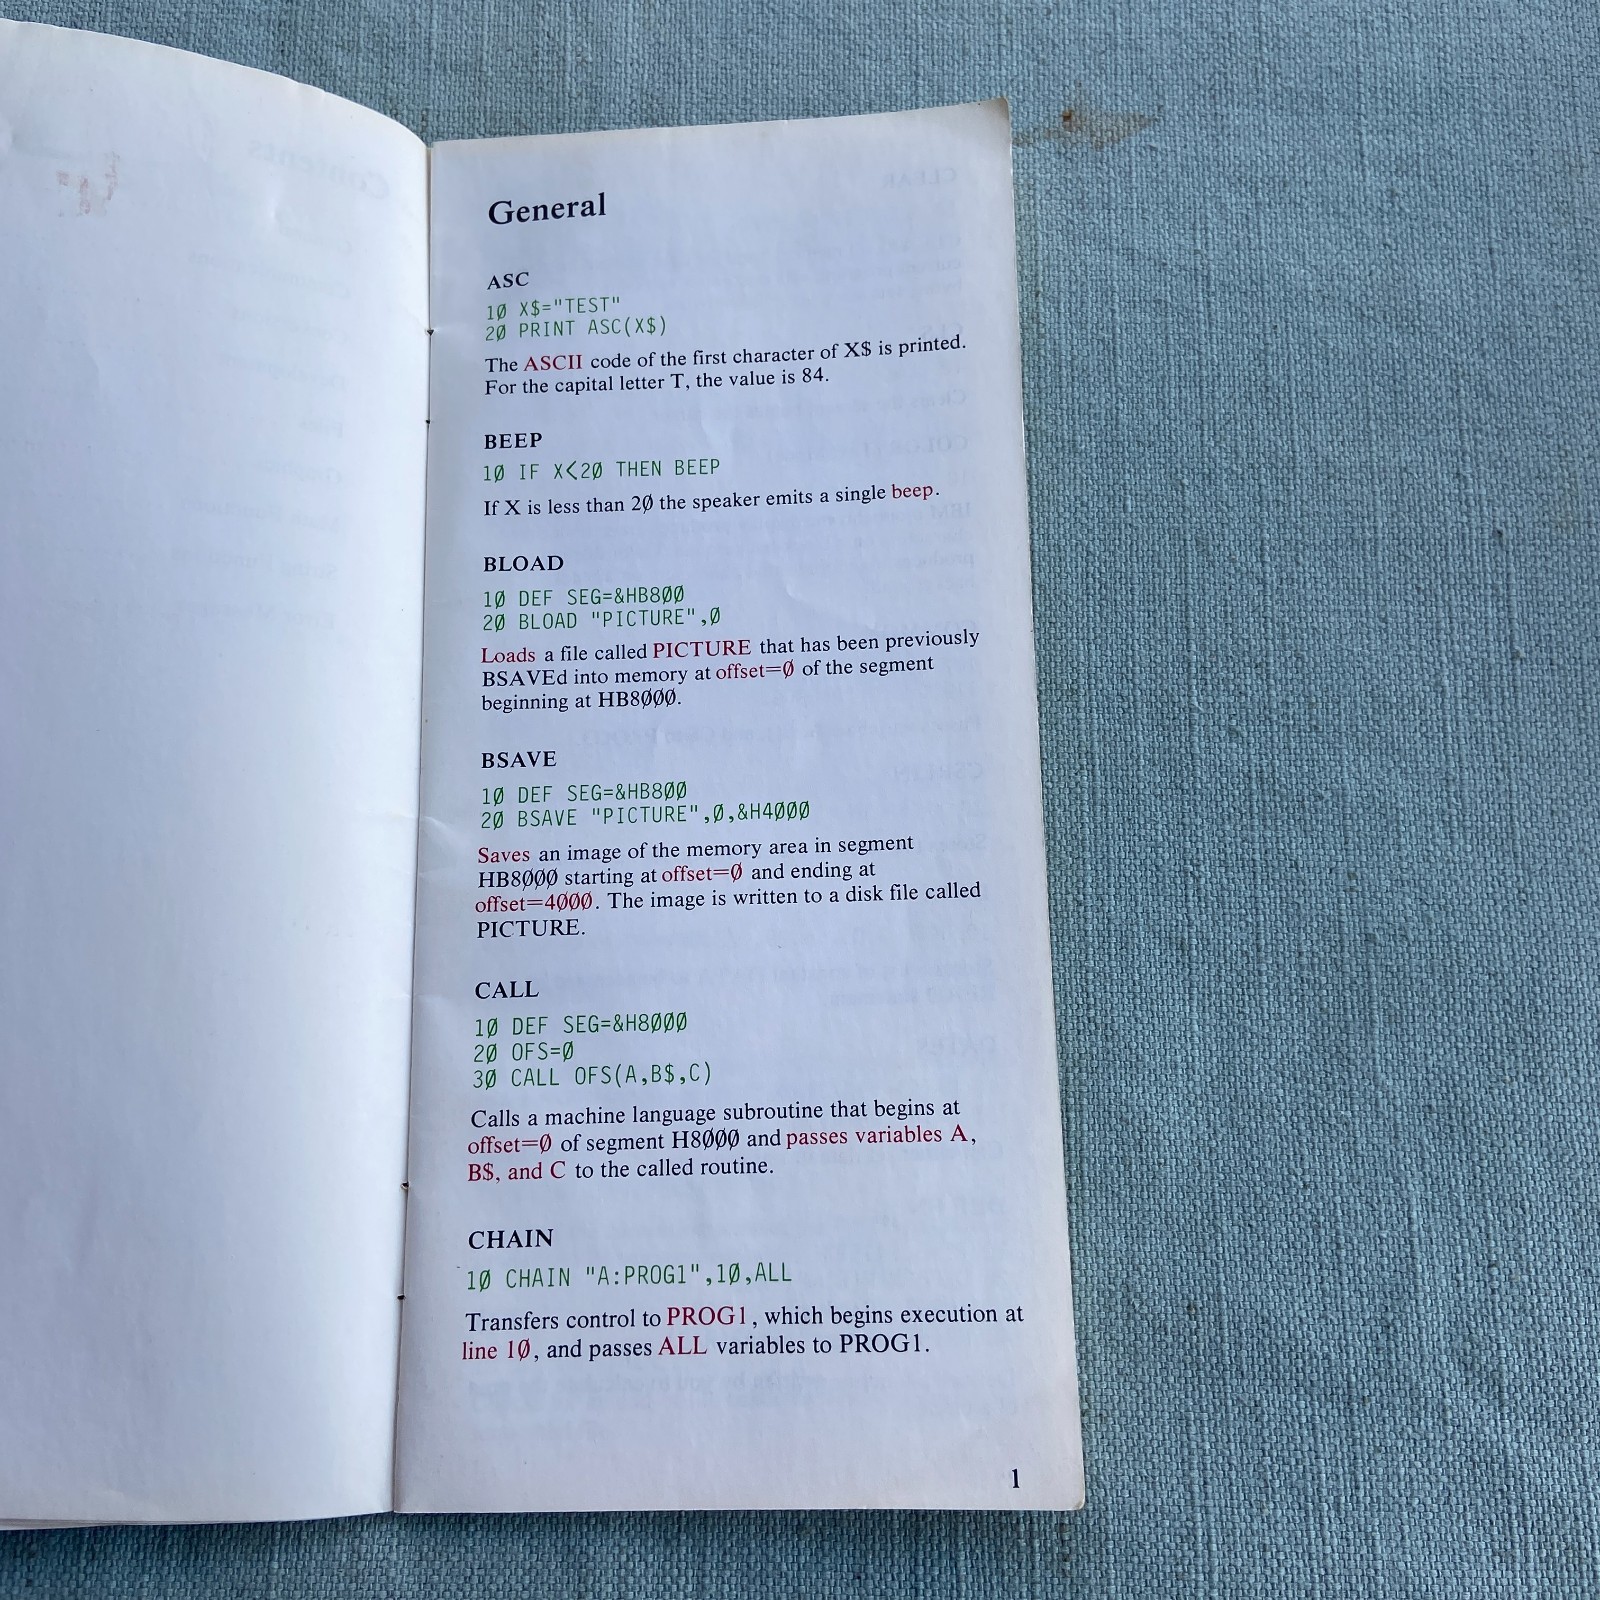 General
ASC
10 X$="TEST"
20 PRINT ASC(X$)
The ASCII code of the first character of X$ is printed.
For the capital letter T, the value is 84.
BEEP
10 IF X<20 THEN BEEP
If X is less than 20 the speaker emits a single beep.
BLOAD
10 DEF SEG=&HB800
20 BLOAD "PICTURE",0
Loads a file called PICTURE that has been previously
BSAVEd into memory at offset=0 of the segment
beginning at HB8000.
BSAVE
10 DEF SEG=&HB800
20 BSAVE "PICTURE",0,&H4000
Saves an image of the memory area in segment
HB8000 starting at offset=0 and ending at
offset=4000. The image is written to a disk file called
PICTURE.
CALL
10 DEF SEG=&H8000
20 OFS=0
30 CALL OFS(A,B$,C)
Calls a machine language subroutine that begins at
offset=0 of segment H8000 and passes variables A,
B$, and C to the called routine.
CHAIN
10 CHAIN "A:PROG1",10,ALL
Transfers control to PROG1, which begins execution at
line 10, and passes ALL variables to PROG1.
1